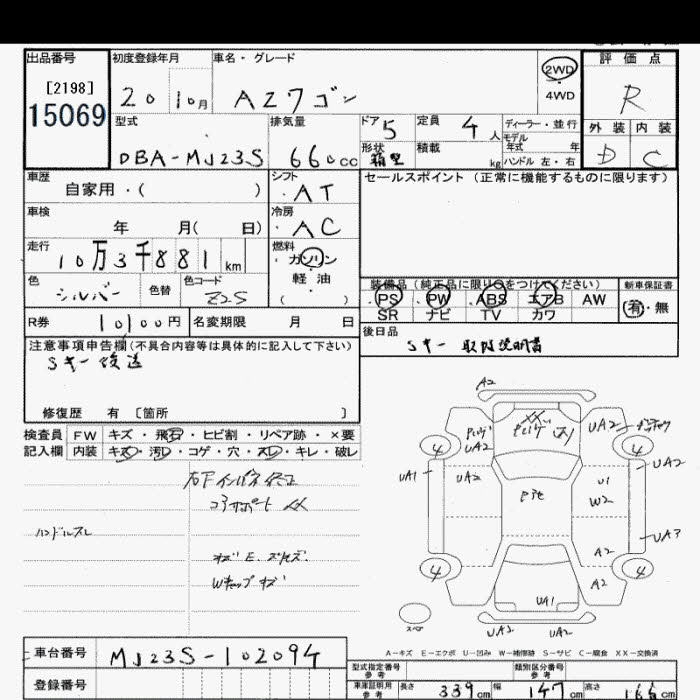 出品番号 初度登録年月 車名・グレード 評価点
[2198]
15069
20 10月 AZワゴン 2WD R
4WD
型式 排気量 ドア 5 定員 4人 ディーラー・並行 外装 内装
モデル
年式 年
DBA-MJ23S 660cc 形状 箱型 積載 kg ハンドル 左・右 D C
車歴 シフト セールスポイント(正常に機能するものに限ります)
自家用・( ) AT
車検 冷房
年 月( 日) AC
走行 燃料
10万3千881km ガソリン
軽油
( )
色 色替 色コード 装備品(純正品に限り○をつけてください) 新車保証書
シルバー Z2S PS PW ABS エアB AW 有・無
SR ナビ TV カワ
R券 10100円 名変期限 月 日
後日品
Sキー 取扱説明書
注意事項申告欄(不具合内容等は具体的に記入して下さい)
Sキー後送
修復歴 有 〔箇所 〕
検査員 FW キズ・飛石・ヒビ割・リペア跡・×要
記入欄 内装 キズ・汚レ・コゲ・穴・スレ・キレ・破レ
コアサポートXX
ハンドルスレ
A2
XX
UA2
UA2
4
4
UA1
UA2
U1
W2
UA2
UA3
A2
A2
4
4
UA1
UA2
UA2
スペア
A－キズ E－エクボ U－凹み W－補修跡 S－サビ C－腐食 XX－交換済
車台番号 MJ23S-102094
登録番号
型式指定番号 参考 類別区分番号 参考
車庫証明用 参考 長さ 339cm 幅 147cm 高さ cm